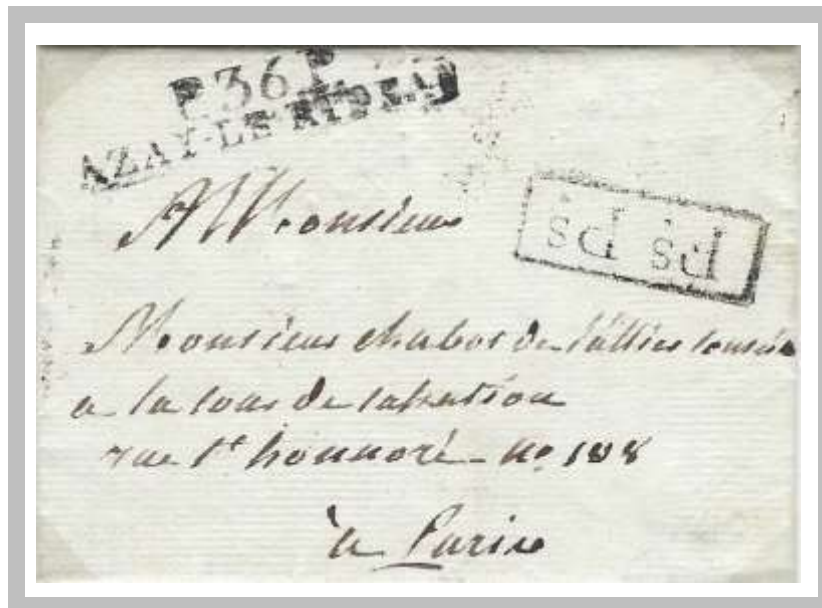 P.36.P.
AZAY-LE-RIDEAU
A Monsieur
Ps. Ps.
Monsieur chabot de l'allier
a la cour de cassation
rue St honnoré - no 108
à Paris